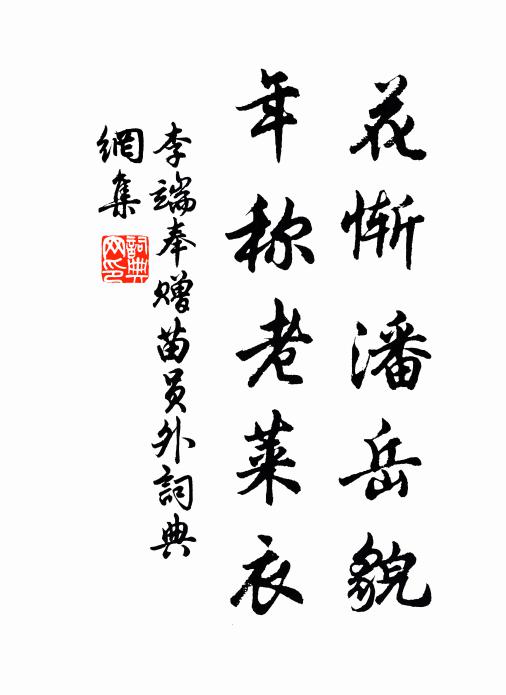 花惭潘岳貌
年称老莱衣
李端奉赠苗员外詞典
網集
詞典网印